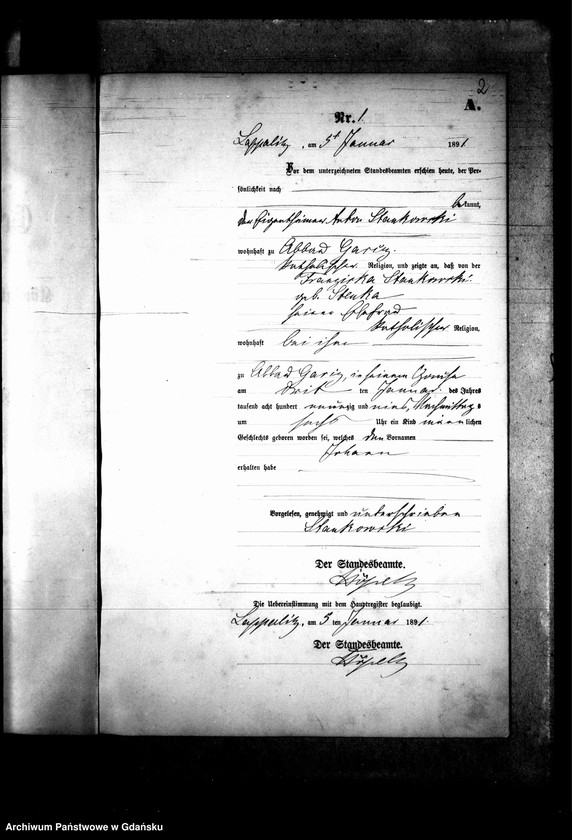 2
A.
Nr. 1
Lappalitz, am 5t Januar 1891
Vor dem unterzeichneten Standesbeamten erschien heute, der Per-
sönlichkeit nach
bekannt,
der Eigenthümer Anton Stankowski
wohnhaft zu Abbau Garcz
katholischer Religion, und zeigte an, daß von der
Franziska Stankowski
geb. Stenka
seiner Ehefrau
katholischer Religion,
wohnhaft bei ihm
zu Abbau Garcz, in seinem Hause
am dritten Januar des Jahres
tausend acht hundert neunzig und eins, Nachmittags
um sechs Uhr ein Kind männlichen
Geschlechts geboren worden sei, welches den Vornamen
Johann
erhalten habe
Vorgelesen, genehmigt und unterschrieben
Stankowski
Der Standesbeamte.
Die Uebereinstimmung mit dem Hauptregister beglaubigt.
Lappalitz, am 5 ten Januar 1891
Der Standesbeamte.
Archiwum Państwowe w Gdańsku